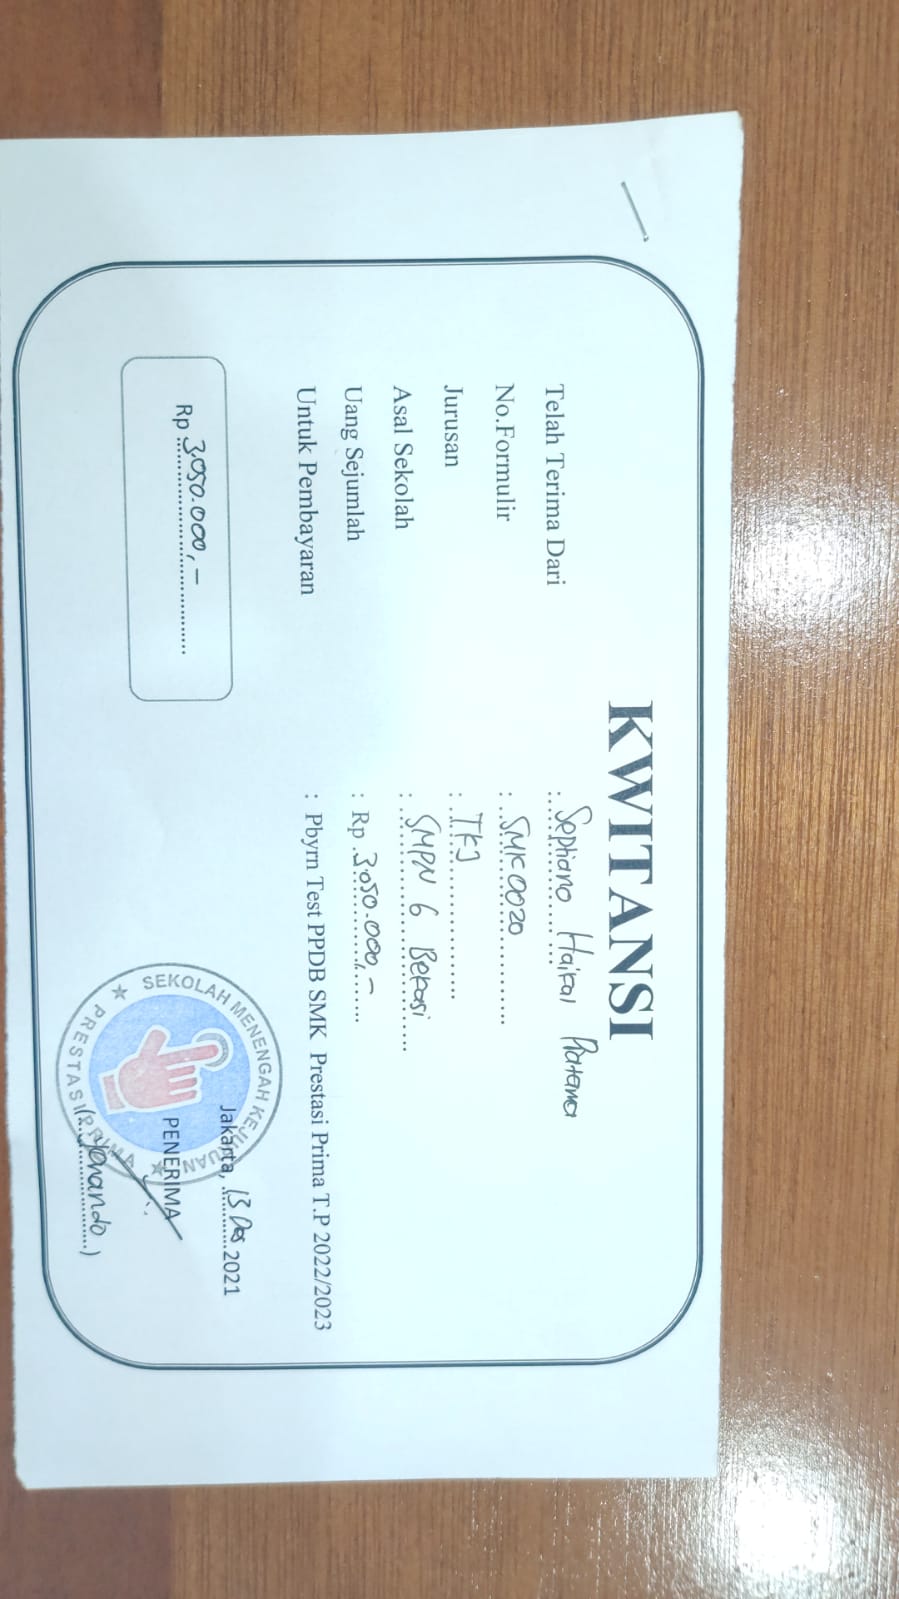 KWITANSI
Telah Terima Dari : Septiano Haikal Pratama
No.Formulir : SMK0020
Jurusan : TKJ
Asal Sekolah : SMPN 6 Bekasi
Uang Sejumlah : Rp 3.050.000,-
Untuk Pembayaran : Pbyrn Test PPDB SMK Prestasi Prima T.P 2022/2023
Rp 3.050.000,-
Jakarta, 13 Des 2021
PENERIMA
(Yonando)
SEKOLAH MENENGAH KEJURUAN
PRESTASI PRIMA